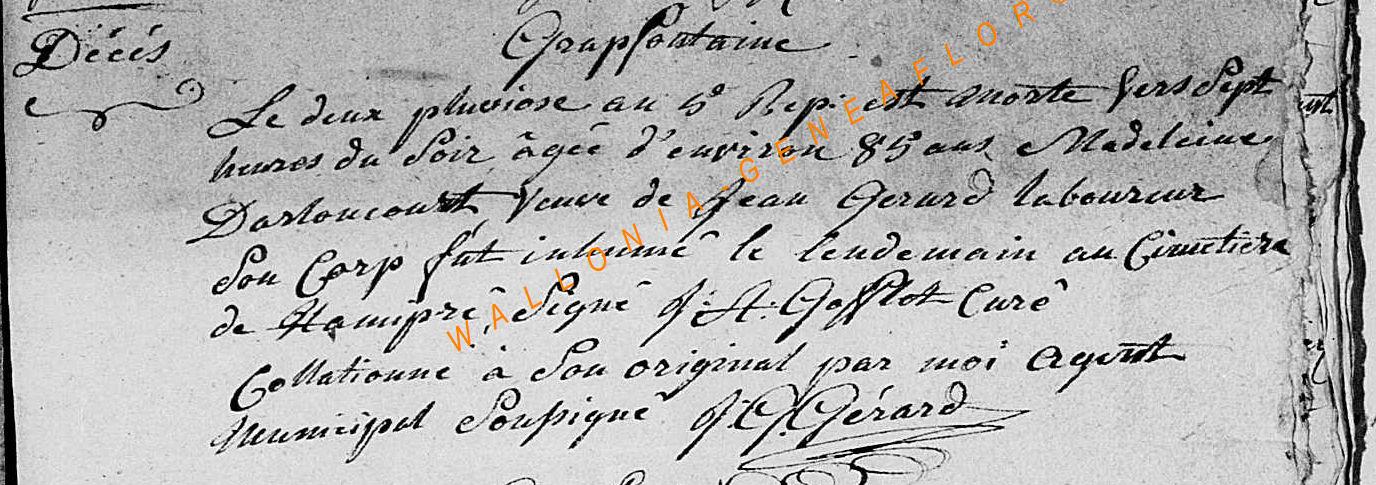 Décés
Grapfontaine
Le deux pluviose an 5e Rep: est morte vers Sept
heures du Soir âgée d'environ 85 ans Madeleine
Darloncourt, veuve de Jean Gerard laboureur
Son Corp fut inhumé le lendemain au Cimetiere
de Hamipré, Signé J: St: Gofflot Curé
Collationné à Son original par moi agent
Municipal Soussigné J: G: Gérard
WALLONIA-GENEAFLOR